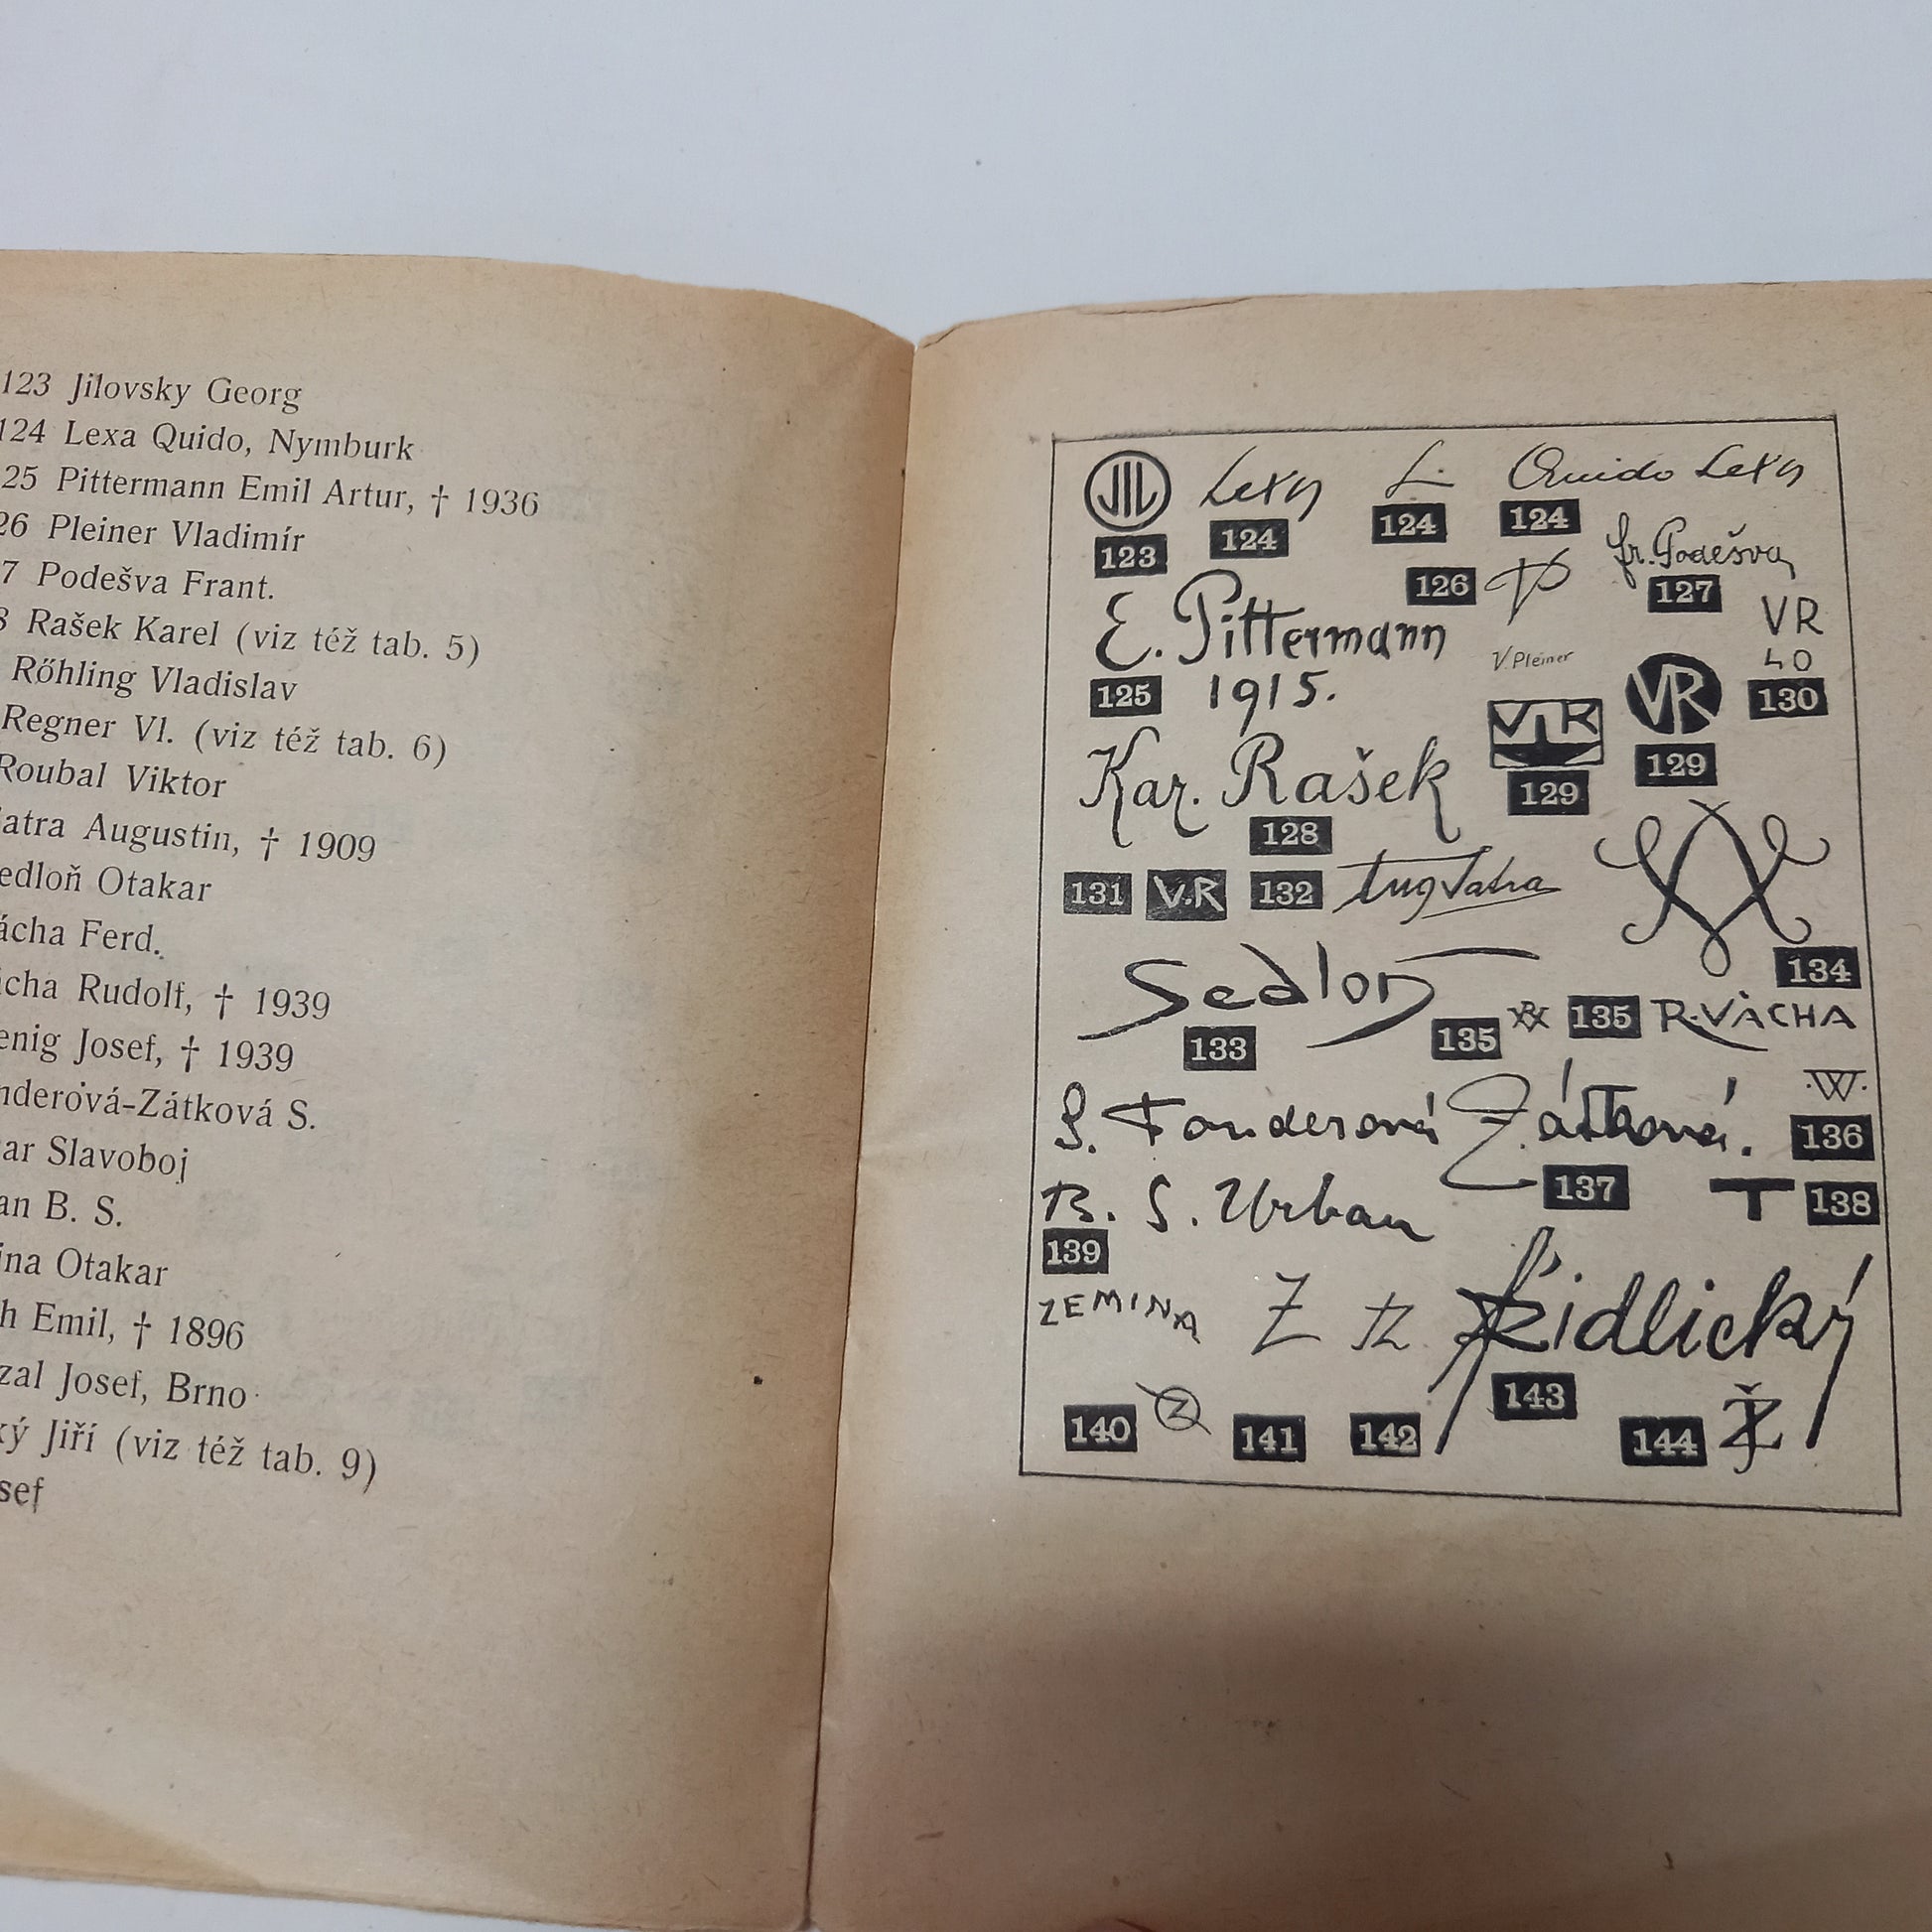 123 Jilovsky Georg
124 Lexa Quido, Nymburk
25 Pittermann Emil Artur, † 1936
26 Pleiner Vladimír
7 Podešva Frant.
8 Rašek Karel (viz též tab. 5)
Rőhling Vladislav
Regner Vl. (viz též tab. 6)
Roubal Viktor
atra Augustin, † 1909
edloň Otakar
ácha Ferd.
cha Rudolf, † 1939
enig Josef, † 1939
nderová-Zátková S.
ar Slavoboj
an B. S.
ina Otakar
h Emil, † 1896
zal Josef, Brno
ký Jiří (viz též tab. 9)
sef
JIL Lexa L. Quido Lexa
123 124 124 124
126 fr. Podešva
127
E. Pittermann
V. Pleiner
VR
40
130
125 1915.
VR VR
129 129
Kar. Rašek
128
131 V.R 132 Aug Satra
134
Sedloň
133
135 135 R. VÁCHA
S. Tonderová Zátková.
W
136
137
T 138
B. S. Urban
139
ZEMINA Z Z Židlický
143
140 Z 141 142 144 Ž